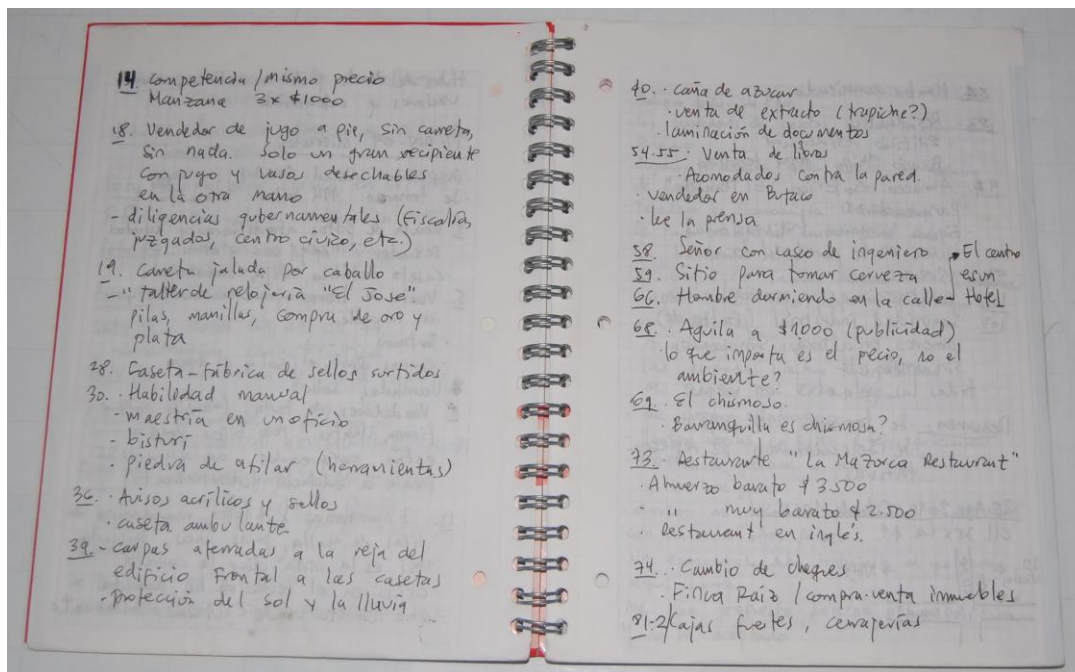 14 competencia / mismo precio
Manzana 3 x $1000
18. Vendedor de jugo a pie, sin carreta,
sin nada. Solo un gran recipiente
con jugo y vasos desechables
en la otra mano
- diligencias gubernamentales (Fiscalía,
juzgados, centro cívico, etc.)
19. Carreta jalada por caballo
- " taller de relojería "El Jose"
pilas, manillas, compra de oro y
plata
28. Caseta - fábrica de sellos surtidos
30. · Habilidad manual
- maestría en un oficio
- bisturí
· piedra de afilar (herramientas)
36. · Avisos acrílicos y sellos
· caseta ambulante
39. - carpas aferradas a la reja del
edificio frontal a las casetas
- protección del sol y la lluvia
40. · Caña de azucar
· venta de extracto (trapiche?)
· laminación de documentos
54.55. Venta de libros
· Acomodados contra la pared.
· vendedor en Butaco
· lee la prensa
58. Señor con casco de ingeniero El centro
59. Sitio para tomar cerveza es un
66. Hombre dormiendo en la calle Hotel
68. · Aguila a $1000 (publicidad)
· lo que importa es el precio, no el
ambiente?
69. · El chismoso.
· Barranquilla es chismosa?
73. · Restaurante "La Mazorca Restaurant"
· Almuerzo barato $3.500
· " muy barato $2.500
· Restaurant en inglés.
74. · Cambio de cheques
· Finca Raiz / compra-venta inmuebles
81-2/ Cajas fuertes, cerrajerías